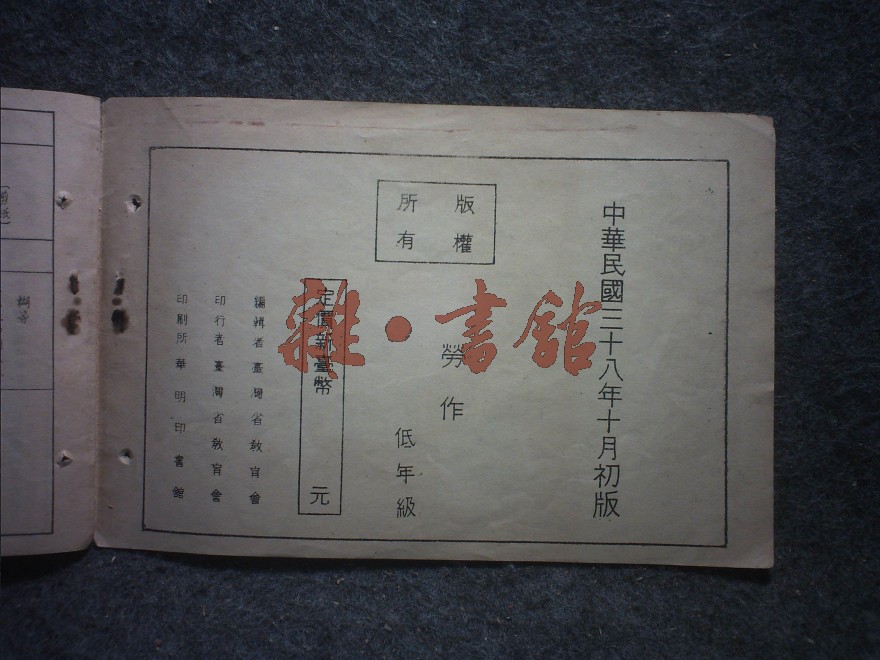 中華民國三十八年十月初版
版權
所有
勞作
低年級
定價新臺幣 元
編輯者臺灣省教育會
印行者臺灣省教育會
印刷所華明印書館
雜·書館